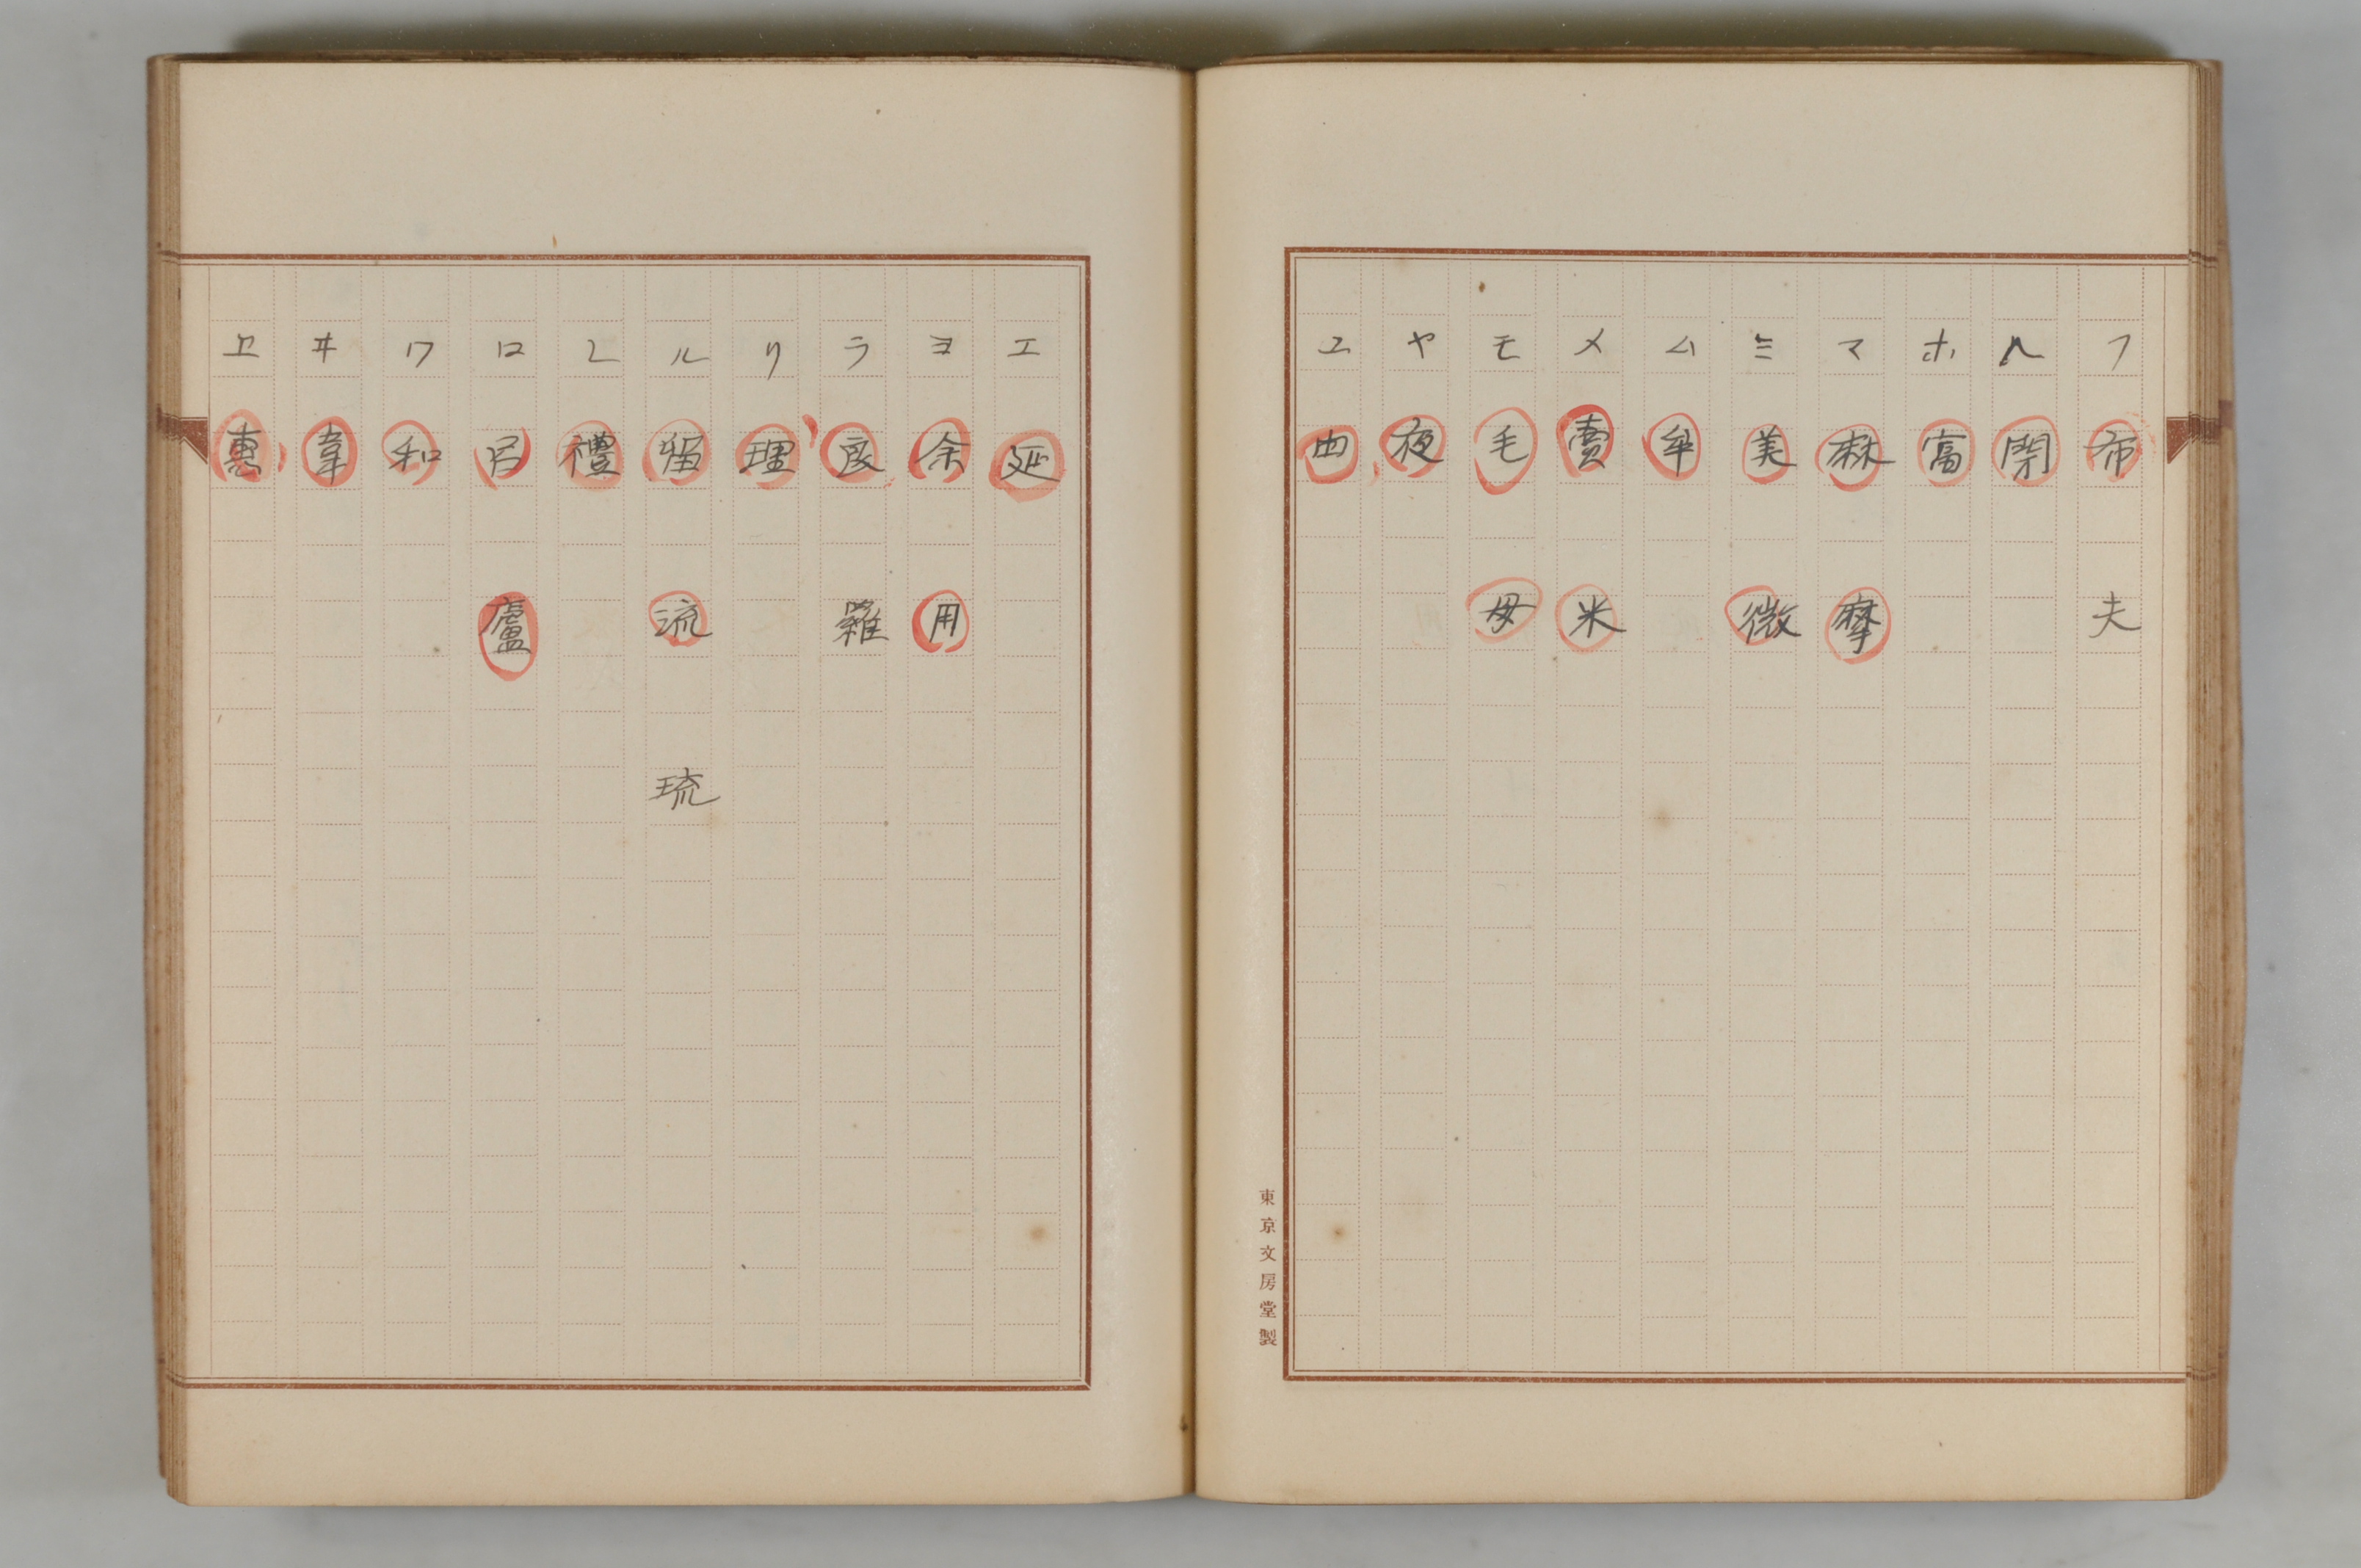 フ 布 夫
ヘ 閇
ホ 富
マ 麻 摩
ミ 美 微
ム 牟
メ 賣 米
モ 毛 母
ヤ 夜
ユ 由
東京文房堂製
エ 延
ヨ 余 用
ラ 良 羅
リ 理
ル 留 流 琉
レ 禮
ロ 呂 廬
ワ 和
ヰ 韋
ヱ 惠